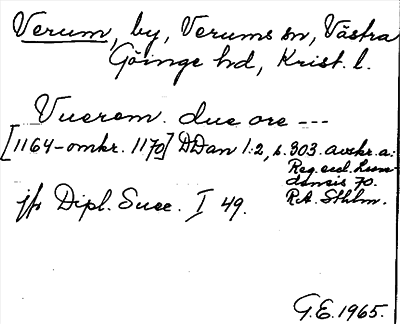 Verum, by, Verums sn, Västra
Göinge hd, Krist. l.
Vuerom. due ore ---
[1164-omkr. 1170] DDan 1:2, s. 303. avskr. a:
Reg. eccl. Lun-
densis 70.
R.A. Sthlm.
jfr Dipl. Suec. I 49.
G.E. 1965.